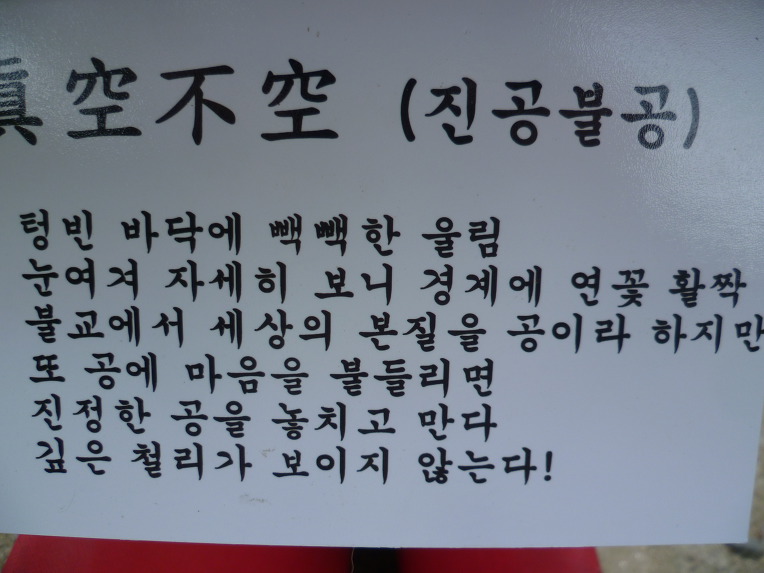 眞空不空 (진공불공)
텅빈 바닥에 빽빽한 울림
눈여겨 자세히 보니 경계에 연꽃 활짝
불교에서 세상의 본질을 공이라 하지만
또 공에 마음을 붙들리면
진정한 공을 놓치고 만다
깊은 철리가 보이지 않는다!